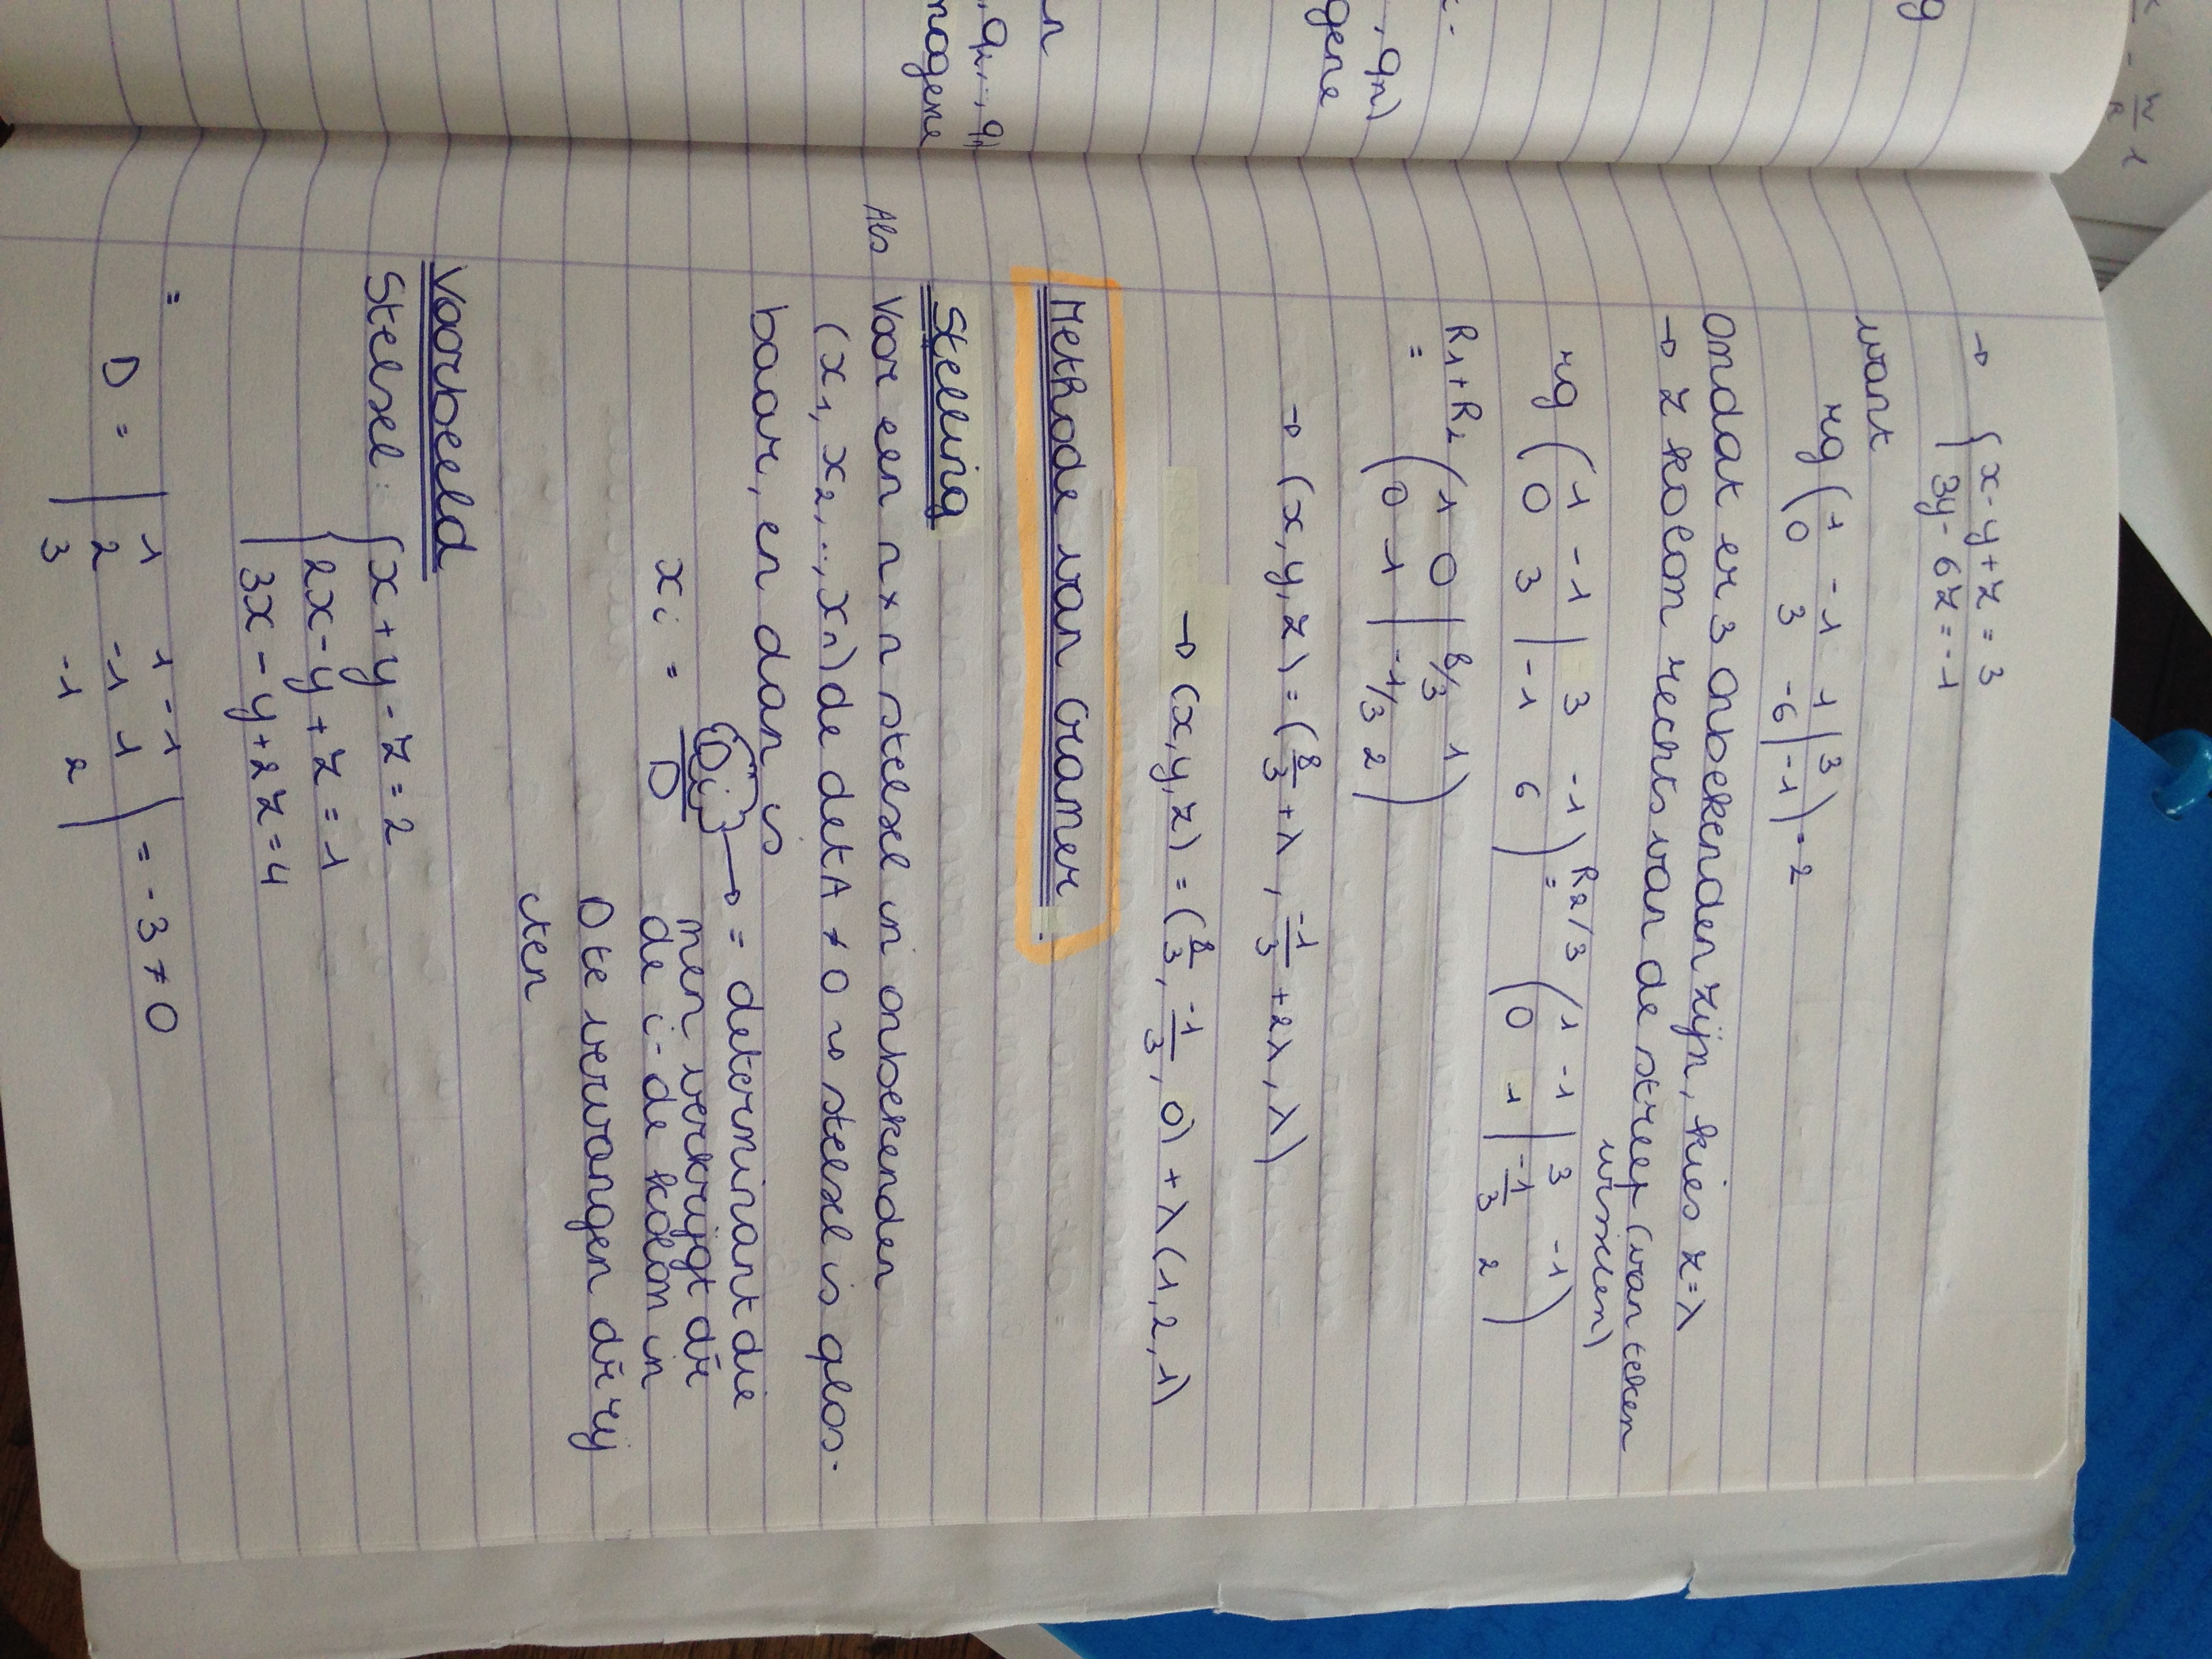 → { x - y + z = 3
3y - 6z = -1
want
rg ( 1 -1 1 | 3
0 3 -6 | -1 ) = 2
Omdat er 3 onbekenden zijn, kies z = λ
→ z kolom rechts van de streep (van teken
wisselen)
rg ( 1 -1 | 3 -1
0 3 | -1 6 ) = R2/3 ( 1 -1 | 3 -1
0 1 | -1/3 2 )
R1+R2 = ( 1 0 | 8/3 1
0 1 | -1/3 2 )
→ (x, y, z) = (8/3 + λ, -1/3 + 2λ, λ)
→ (x, y, z) = (8/3, -1/3, 0) + λ (1, 2, 1)
Methode van Cramer
Stelling
Als Voor een n × n stelsel in onbekenden
(x1, x2, ..., xn) de det A ≠ 0 ⇝ stelsel is oplos-
baar, en dan is
xi = Di / D → = determinant die
men verkrijgt dr
de i-de kolom in
D te vervangen dr rj
cten
Voorbeeld
Stelsel: { x + y - z = 2
2x - y + z = 1
3x - y + 2z = 4
D = | 1 1 -1
2 -1 1
3 -1 2 | = -3 ≠ 0
=
gene
magene